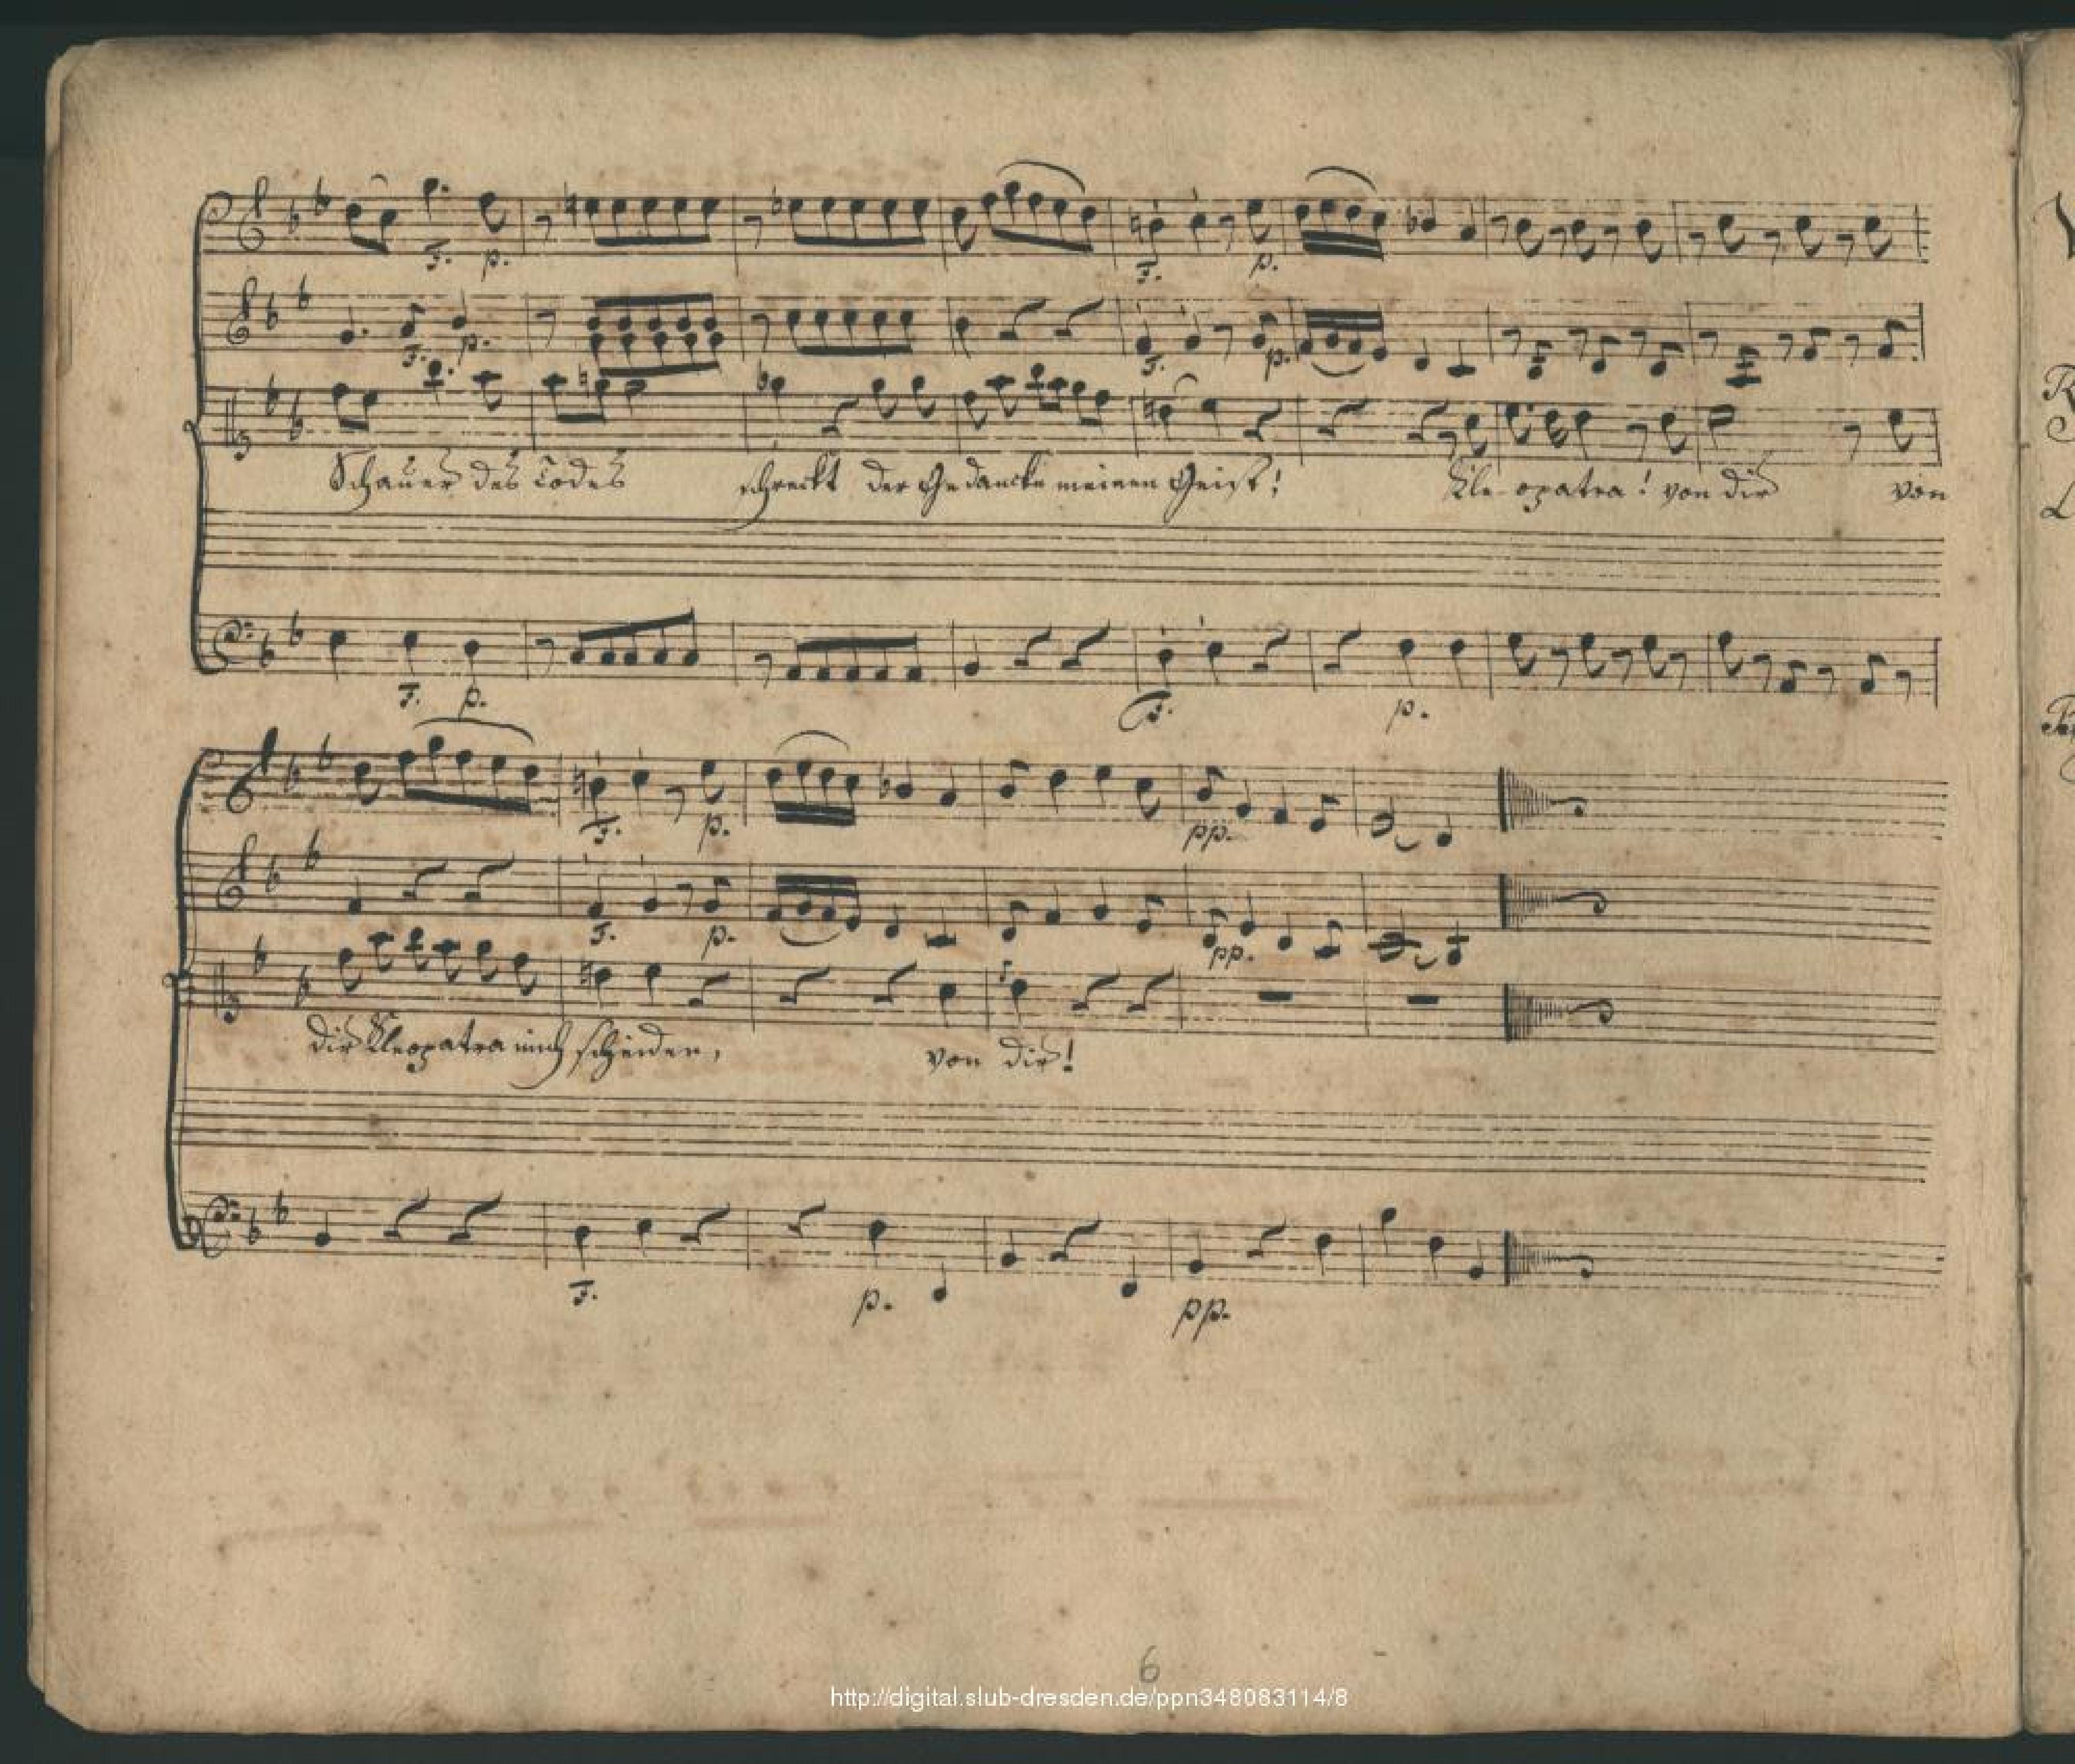 F. p. F. p.
F. p. F. p.
Schauer des Todes schreckt der Gedancke meinen Geist! Kle-opatra! von dir von
F. p. F. p.
F. p. pp.
F. p. pp.
dir Kleopatra mich scheiden, von dir!
F. p. pp.
6
http://digital.slub-dresden.de/ppn348083114/8